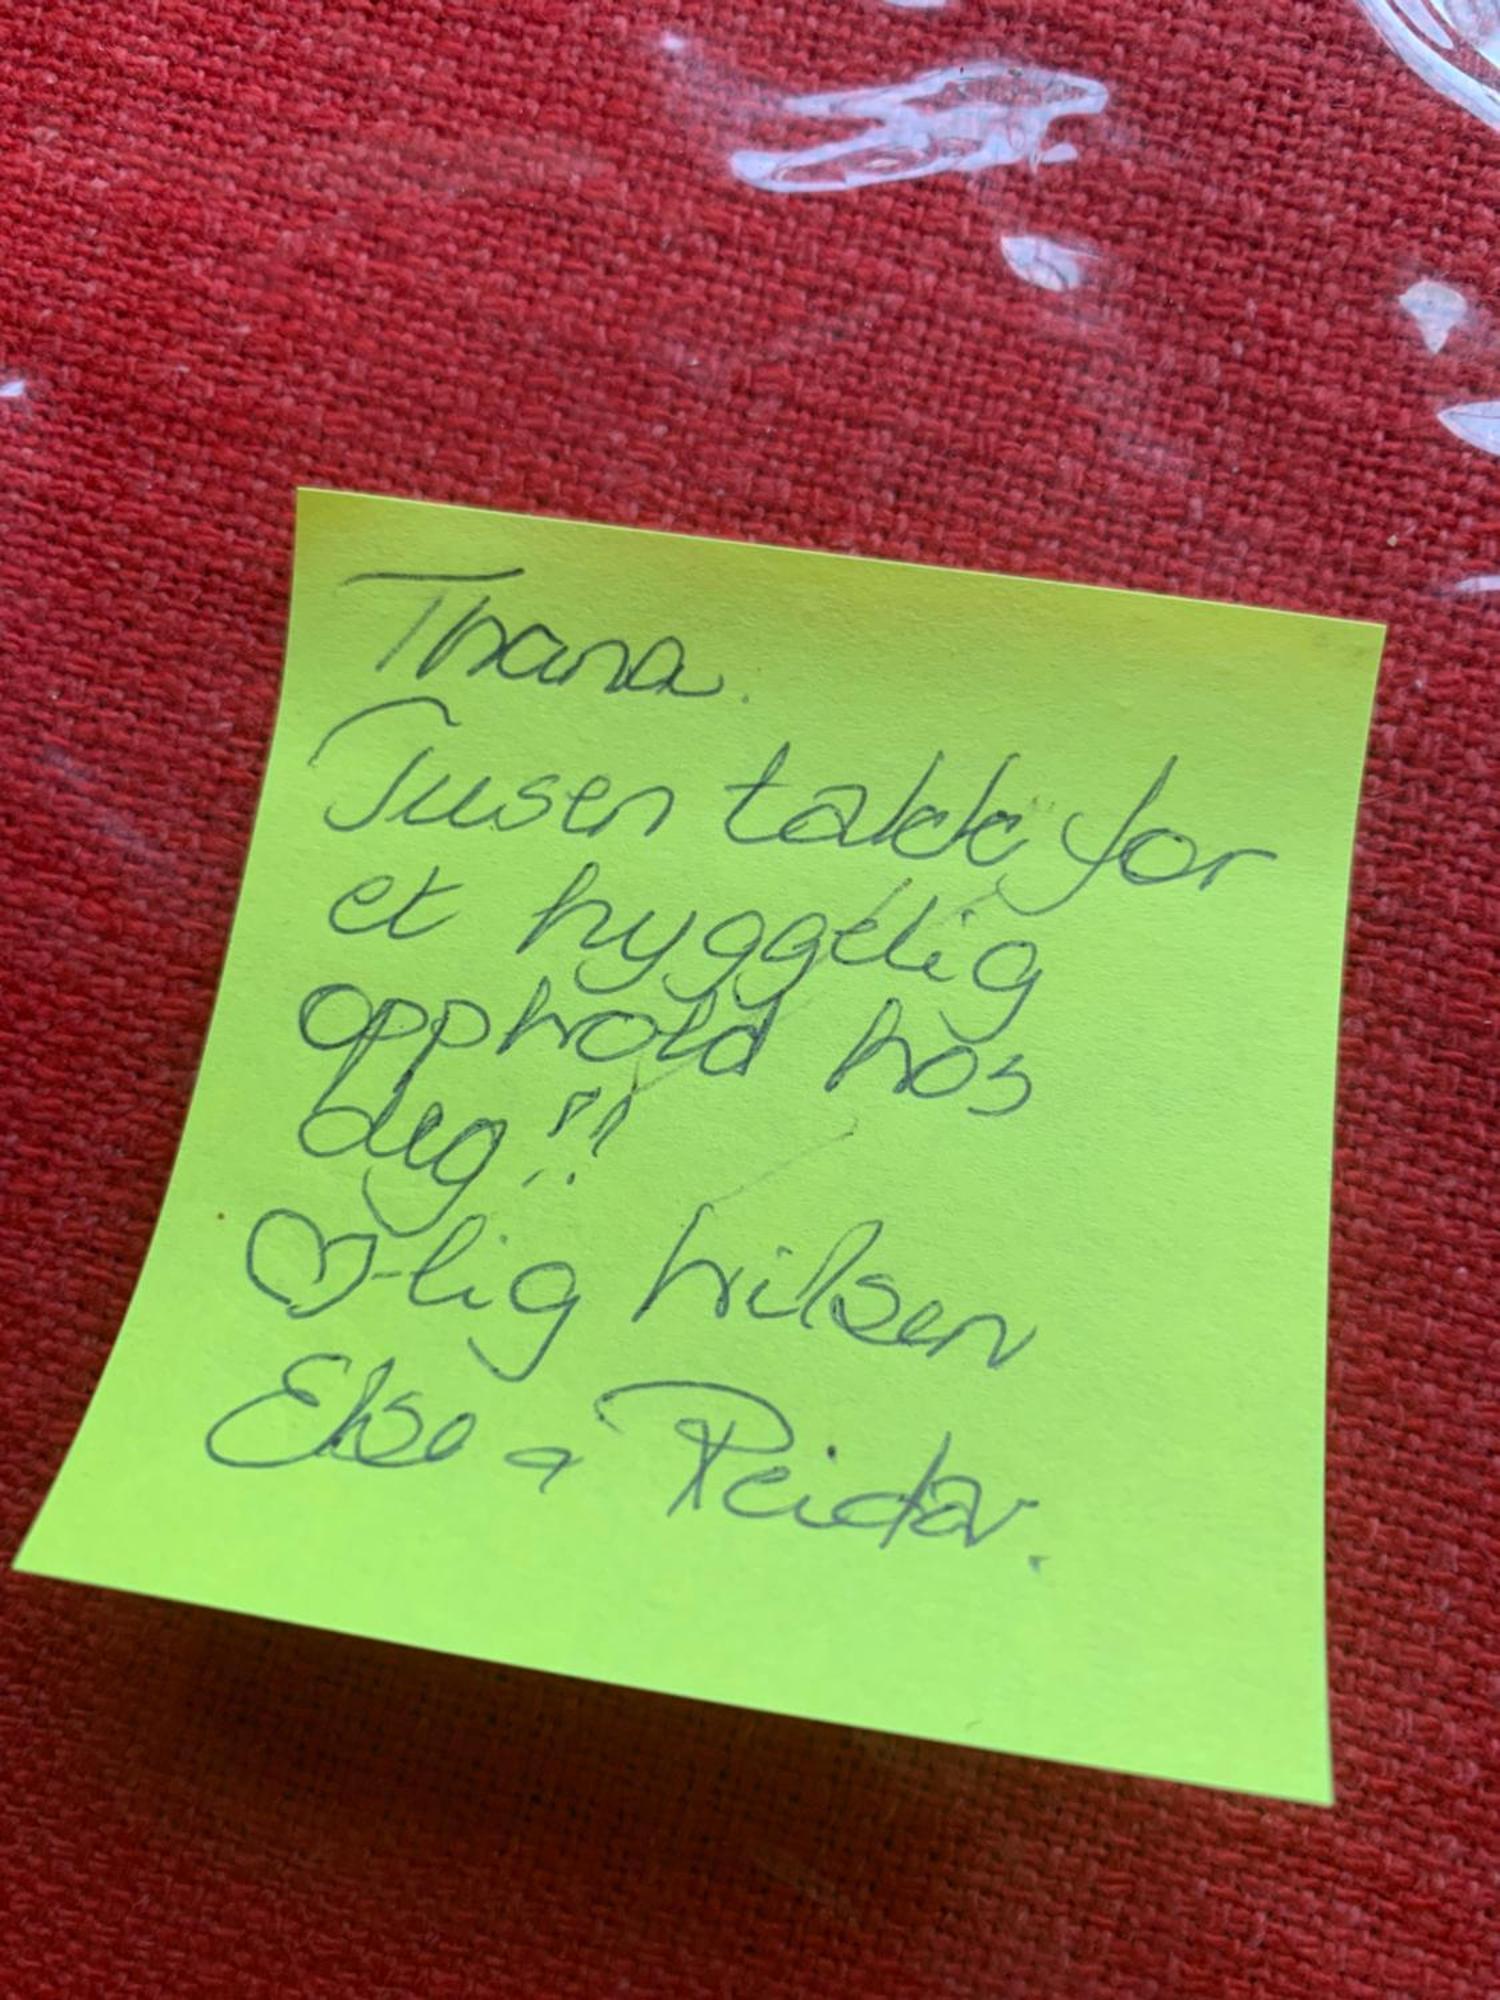 Thana.
Tusen takk for
et hyggelig
opphold hos
deg!!
♡-lig hilsen
Else & Reidar.